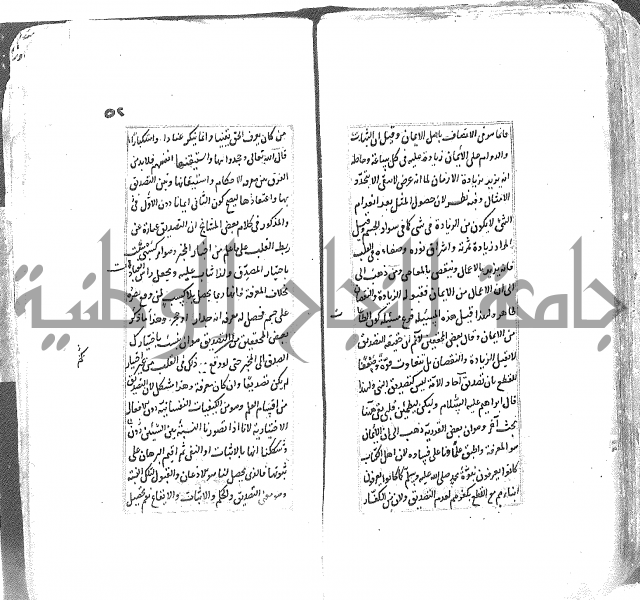 فانما هو فى الاتصاف باصل الايمان وقيل ان الثبات
والدوام على الايمان زيادة عليه فى كل ساعة وحاصله
انه يزيد بزيادة الازمان لما انه عرض لا يبقى الا بتجدد
الامثال وفيه نظر لان حصول المثل بعد انعدام
الشئ لا يكون من الزيادة فى شئ كما فى سواد الجسم وقيل
المراد زيادة ثمرته واشراق نوره وضيائه فى القلب
فانه يزيد بالاعمال وينقص بالمعاصى ومن ذهب الى
ان الاعمال من الايمان فقبوله الزيادة والنقصان
ظاهر ولهذا قيل هذه المسئلة فرع مسئلة كون الطا
من الايمان وقال بعض المحققين لا نم ان حقيقة التصديق
لا يقبل الزيادة والنقصان بل يتفاوت قوة وضعفا
للقطع بان تصديق آحاد الامة ليس كتصديق النبى ولهذا
قال ابراهيم عليه السلام ولكن ليطمئن قلبى بقى هنا
بحث آخر وهو ان بعض القدرية ذهب الى ان الايمان
هو المعرفة واطبق علماؤنا على فساده لان اهل الكتاب
كانوا يعرفون نبوة محمد صلى الله عليه وسلم كما كانوا يعرفون
ابناءهم مع القطع بكفرهم لعدم التصديق ولان من الكفار
٥٢
من كان يعرف الحق يقينا وانما ينكر عنادا واستكبارا
قال الله تعالى وجحدوا بها واستيقنتها انفسهم فلا بد من
الفرق بين معرفة الاحكام واستيقانها وبين التصديق
بها واعتقادها ليصح كون الثانى ايمانا دون الاول فى
والمذكور فى كلام بعض المشايخ ان التصديق عبارة عن
ربط القلب على ما علم من اخبار المخبر وهو امر كسبى يثبت
باختيار المصدق ولذا يثاب عليه ويجعل رأس العبادات
بخلاف المعرفة فانها ربما يحصل بلا كسب كمن وقع بصره
على جسم فحصل له معرفة انه جدار او حجر وهذا ما ذكره
بعض المحققين من ان التصديق هو ان تنسب باختيارك
الصدق الى المخبر حتى لو وقع ذلك فى القلب من غير اختيار
لم يكن تصديقا وان كان معرفة وهذا مشكل لان التصديق
من اقسام العلم وهو من الكيفيات النفسانية دون الافعال
الاختيارية لانا اذا تصورنا النسبة بين الشيئين
وشككنا انها بالاثبات او النفى ثم اقيم البرهان على
ثبوتها فالذى يحصل لنا هو الاذعان والقبول لتلك النسبة
وهو معنى التصديق والحكم والاثبات والايقاع نعم تحصيل
جامعة النجاح الوطنية